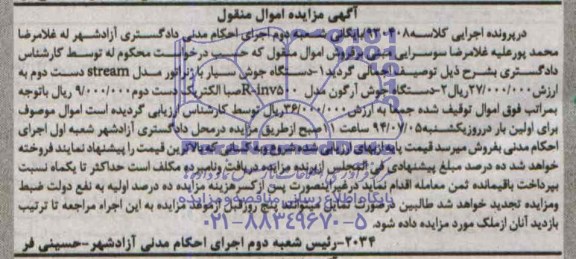 آگهی مزایده اموال منقول
درپرونده اجرایی کلاسه ۹۳۰۴۰۸ بایگانی شعبه دوم اجرای احکام مدنی دادگستری آزادشهر له غلامرضا
محمد پورعلیه غلامرضا سوسرایی مبنی برفروش اموال منقول که حسب درخواست محکوم له توسط کارشناس
دادگستری بشرح ذیل توصیف اجمالی گردید ۱-دستگاه جوش سیار با ژنراتور مدل stream دست دوم به
ارزش ۲۷/۰۰۰/۰۰۰ریال ۲-دستگاه جوش آرگون مدل R-inv۵۰۰ صبا الکتریک دست دوم ۹/۰۰۰/۰۰۰ ریال باتوجه
بمراتب فوق اموال توقیف شده جمعا به ارزش ۳۶/۰۰۰/۰۰۰ریال توسط کارشناس ارزیابی گردیده است اموال موصوف
برای اولین بار درروزیکشنبه ۹۴/۰۷/۰۵ ساعت ۱۱ صبح ازطریق مزایده درمحل دادگستری آزادشهر شعبه اول اجرای
احکام مدنی بفروش میرسد قیمت پایه ازبهای ارزیابی شده شروع وبه کسانی که بالاترین قیمت را پیشنهاد نمایند فروخته
خواهد شد ده درصد مبلغ پیشنهادی فی المجلس ازبرنده مزایده دریافت ونامبرده مکلف است حداکثر تا یکماه نسبت
بپرداخت باقیمانده ثمن معامله اقدام نماید درغیراینصورت پس ازکسرهزینه مزایده ده درصد اولیه به نفع دولت ضبط
ومزایده تجدید خواهد شد طالبین درصورت تمایل میتوانند پنج روزقبل ازموعد مزایده به این اجراء مراجعه تا ترتیب
بازدید آنان ازملک مورد مزایده داده شود.
پایگاه اطلاع رسانی مناقصه و مزایده
۰۲۱-۸۸۳۴۹۶۷۰-۵
۲۰۳۴-رئیس شعبه دوم اجرای احکام مدنی آزادشهر-حسینی فر